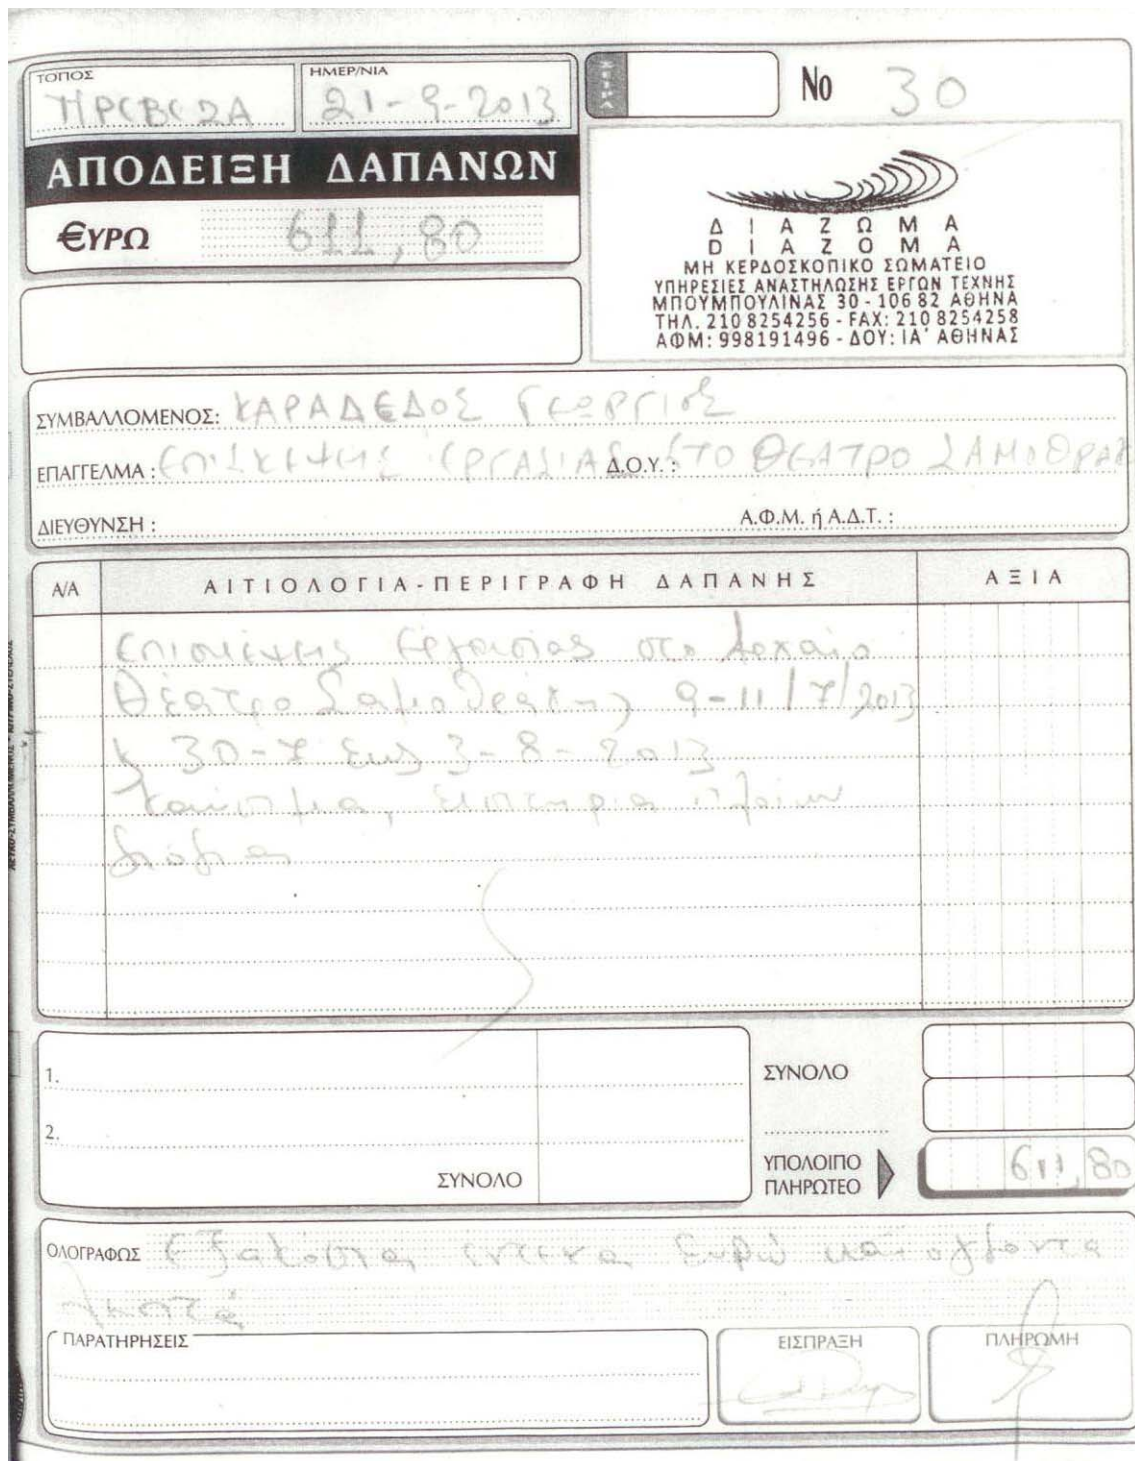 ΤΟΠΟΣ ΗΜΕΡ/ΝΙΑ
ΠΡΕΒΕΖΑ 21-9-2013
ΣΕΙΡΑ
Νο 30
ΑΠΟΔΕΙΞΗ ΔΑΠΑΝΩΝ
€ΥΡΩ 611,80
ΔΙΑΖΩΜΑ
DIAZOMA
ΜΗ ΚΕΡΔΟΣΚΟΠΙΚΟ ΣΩΜΑΤΕΙΟ
ΥΠΗΡΕΣΙΕΣ ΑΝΑΣΤΗΛΩΣΗΣ ΕΡΓΩΝ ΤΕΧΝΗΣ
ΜΠΟΥΜΠΟΥΛΙΝΑΣ 30 - 106 82 ΑΘΗΝΑ
ΤΗΛ. 210 8254256 - FAX: 210 8254258
ΑΦΜ: 998191496 - ΔΟΥ: ΙΑ' ΑΘΗΝΑΣ
ΣΥΜΒΑΛΛΟΜΕΝΟΣ: ΚΑΡΑΔΕΔΟΣ ΓΕΩΡΓΙΟΣ
ΕΠΑΓΓΕΛΜΑ : ΕΠΙΣΚΕΨΗΣ ΕΡΓΑΣΙΑΣ Δ.Ο.Υ. : ΣΤΟ ΘΕΑΤΡΟ ΣΑΜΟΘΡΑΚ
ΔΙΕΥΘΥΝΣΗ : Α.Φ.Μ. ή Α.Δ.Τ. :
Α/Α ΑΙΤΙΟΛΟΓΙΑ-ΠΕΡΙΓΡΑΦΗ ΔΑΠΑΝΗΣ ΑΞΙΑ
Επισκέψης Εργασίας στο Αρχαίο
Θέατρο Σαμοθράκης 9-11/7/2013
& 30-7 έως 3-8-2013
Καύσιμα, εισιτήρια πλοίων
διόδια
1.
2.
ΣΥΝΟΛΟ
ΣΥΝΟΛΟ
ΥΠΟΛΟΙΠΟ
ΠΛΗΡΩΤΕΟ 611,80
ΟΛΟΓΡΑΦΩΣ Εξακόσια έντεκα Ευρώ και ογδόντα
λεπτά
ΠΑΡΑΤΗΡΗΣΕΙΣ ΕΙΣΠΡΑΞΗ ΠΛΗΡΩΜΗ